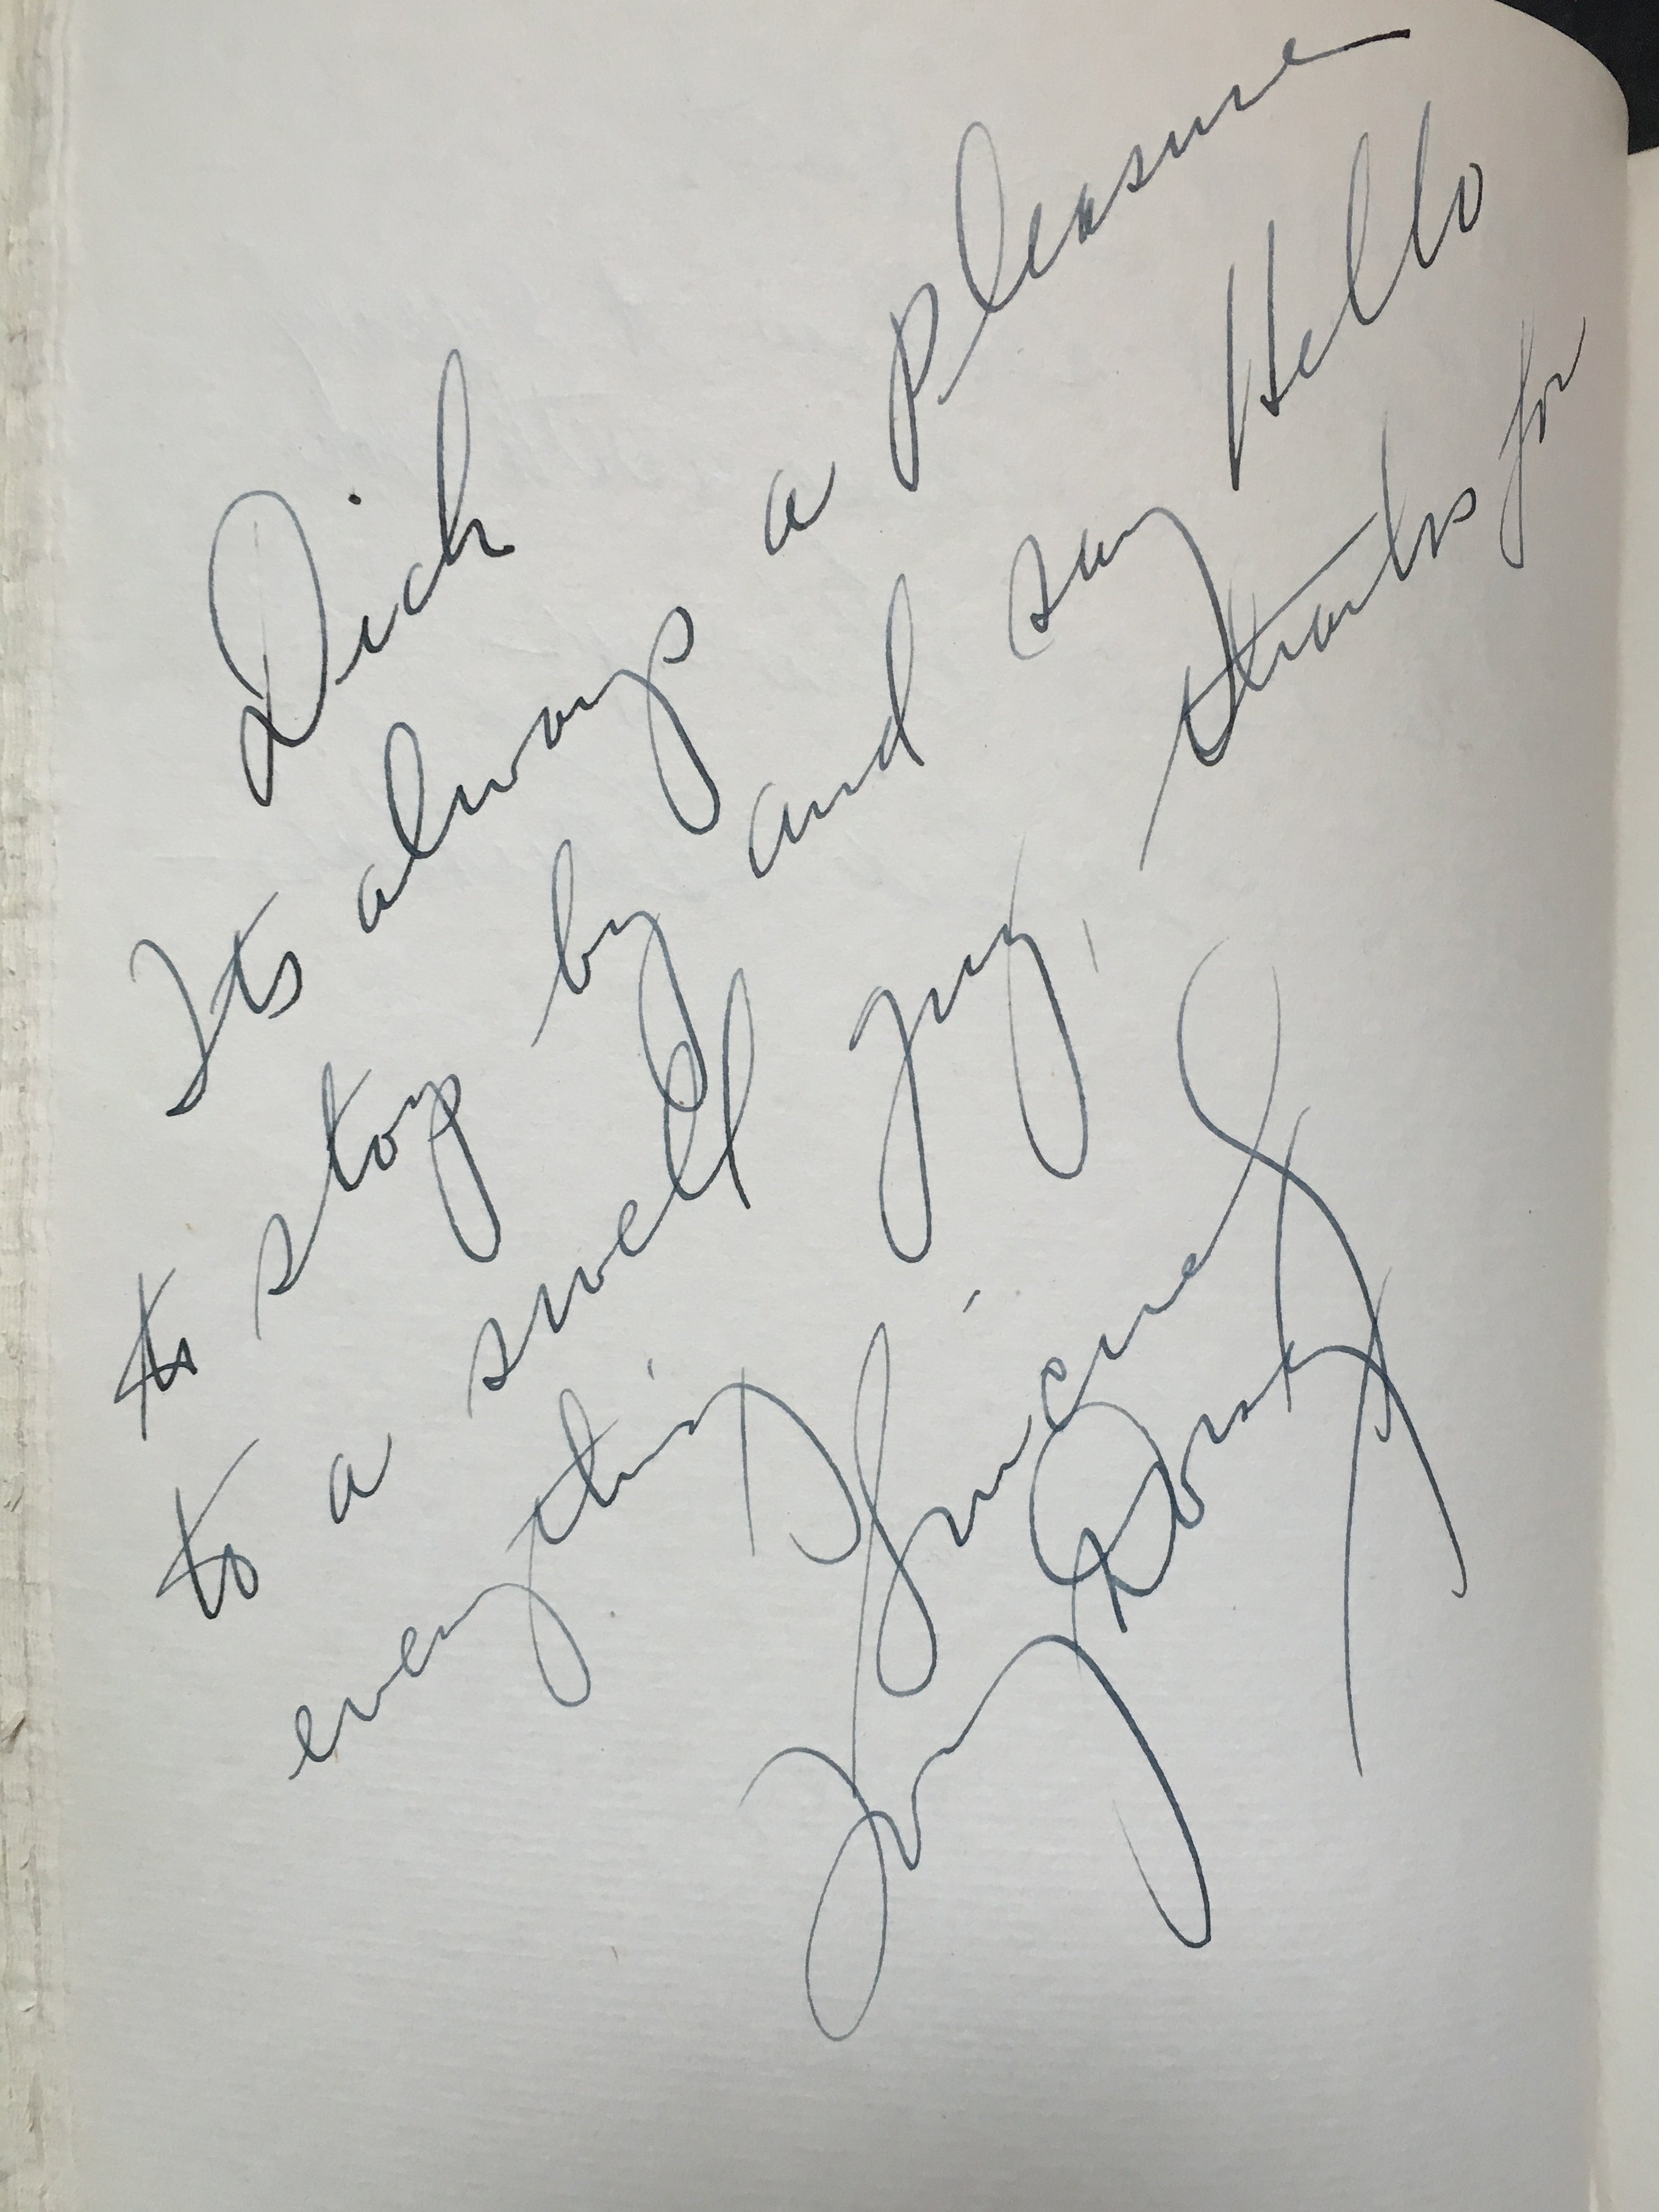 Dick
Its always a pleasure
to stop by and say Hello
to a swell guy, thanks for
everything
Sincerely
Tommy Dorsey